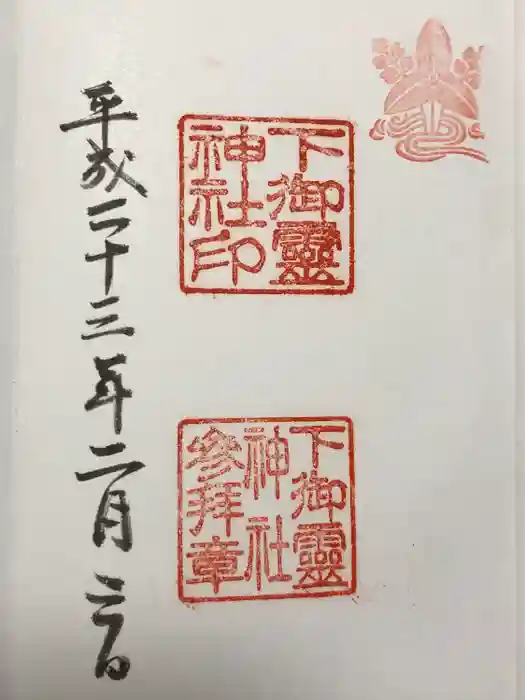 下御靈
神社印
下御靈
神社
參拜章
平成二十三年二月二日